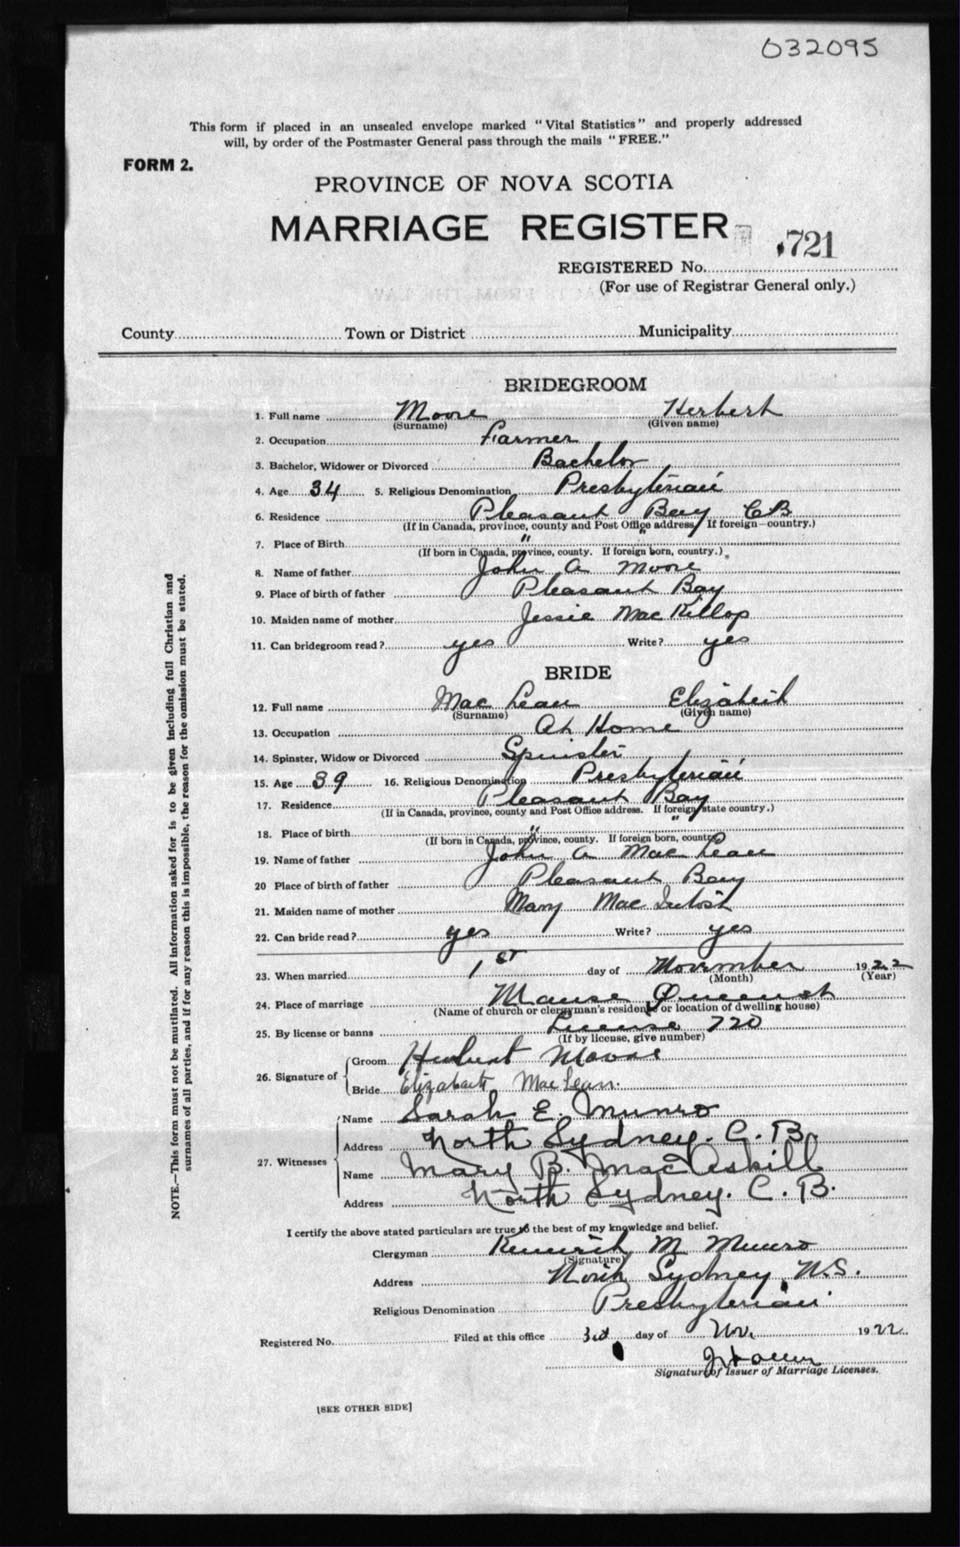 032095
This form if placed in an unsealed envelope marked "Vital Statistics" and properly addressed
will, by order of the Postmaster General pass through the mails "FREE."
FORM 2.
PROVINCE OF NOVA SCOTIA
MARRIAGE REGISTER
721
REGISTERED No.
(For use of Registrar General only.)
County Town or District Municipality
BRIDEGROOM
1. Full name Moore Herbert
(Surname) (Given name)
2. Occupation Farmer
3. Bachelor, Widower or Divorced Bachelor
4. Age 34 5. Religious Denomination Presbyterian
6. Residence Pleasant Bay CB
(If in Canada, province, county and Post Office address, If foreign—country.)
7. Place of Birth " "
(If born in Canada, province, county. If foreign born, country.)
8. Name of father John A Moore
9. Place of birth of father Pleasant Bay
10. Maiden name of mother Jessie MacKillop
11. Can bridegroom read? yes Write? yes
BRIDE
12. Full name MacLean Elizabeth
(Surname) (Given name)
13. Occupation At Home
14. Spinster, Widow or Divorced Spinster
15. Age 39 16. Religious Denomination Presbyterian
17. Residence Pleasant Bay
(If in Canada, province, county and Post Office address. If foreign state country.)
18. Place of birth " "
(If born in Canada, province, county. If foreign born, country)
19. Name of father John A MacLean
20 Place of birth of father Pleasant Bay
21. Maiden name of mother Mary MacIntosh
22. Can bride read? yes Write? yes
23. When married 1st day of November 1922
(Month) (Year)
24. Place of marriage Manse
(Name of church or clergyman's residence or location of dwelling house)
25. By license or banns License 720
(If by license, give number)
26. Signature of
Groom Herbert Moore
Bride Elizabeth MacLean.
27. Witnesses
Name Sarah E. Munro
Address North Sydney. C. B.
Name Mary B. MacAskill
Address North Sydney. C. B.
I certify the above stated particulars are true to the best of my knowledge and belief.
Clergyman M Munro
(Signature)
Address North Sydney, N.S.
Religious Denomination Presbyterian
Registered No. Filed at this office 3rd day of Nov. 1922
Signature of Issuer of Marriage Licenses.
[SEE OTHER SIDE]
NOTE.—This form must not be mutilated. All information asked for is to be given including full Christian and
surnames of all parties, and if for any reason this is impossible, the reason for the omission must be stated.